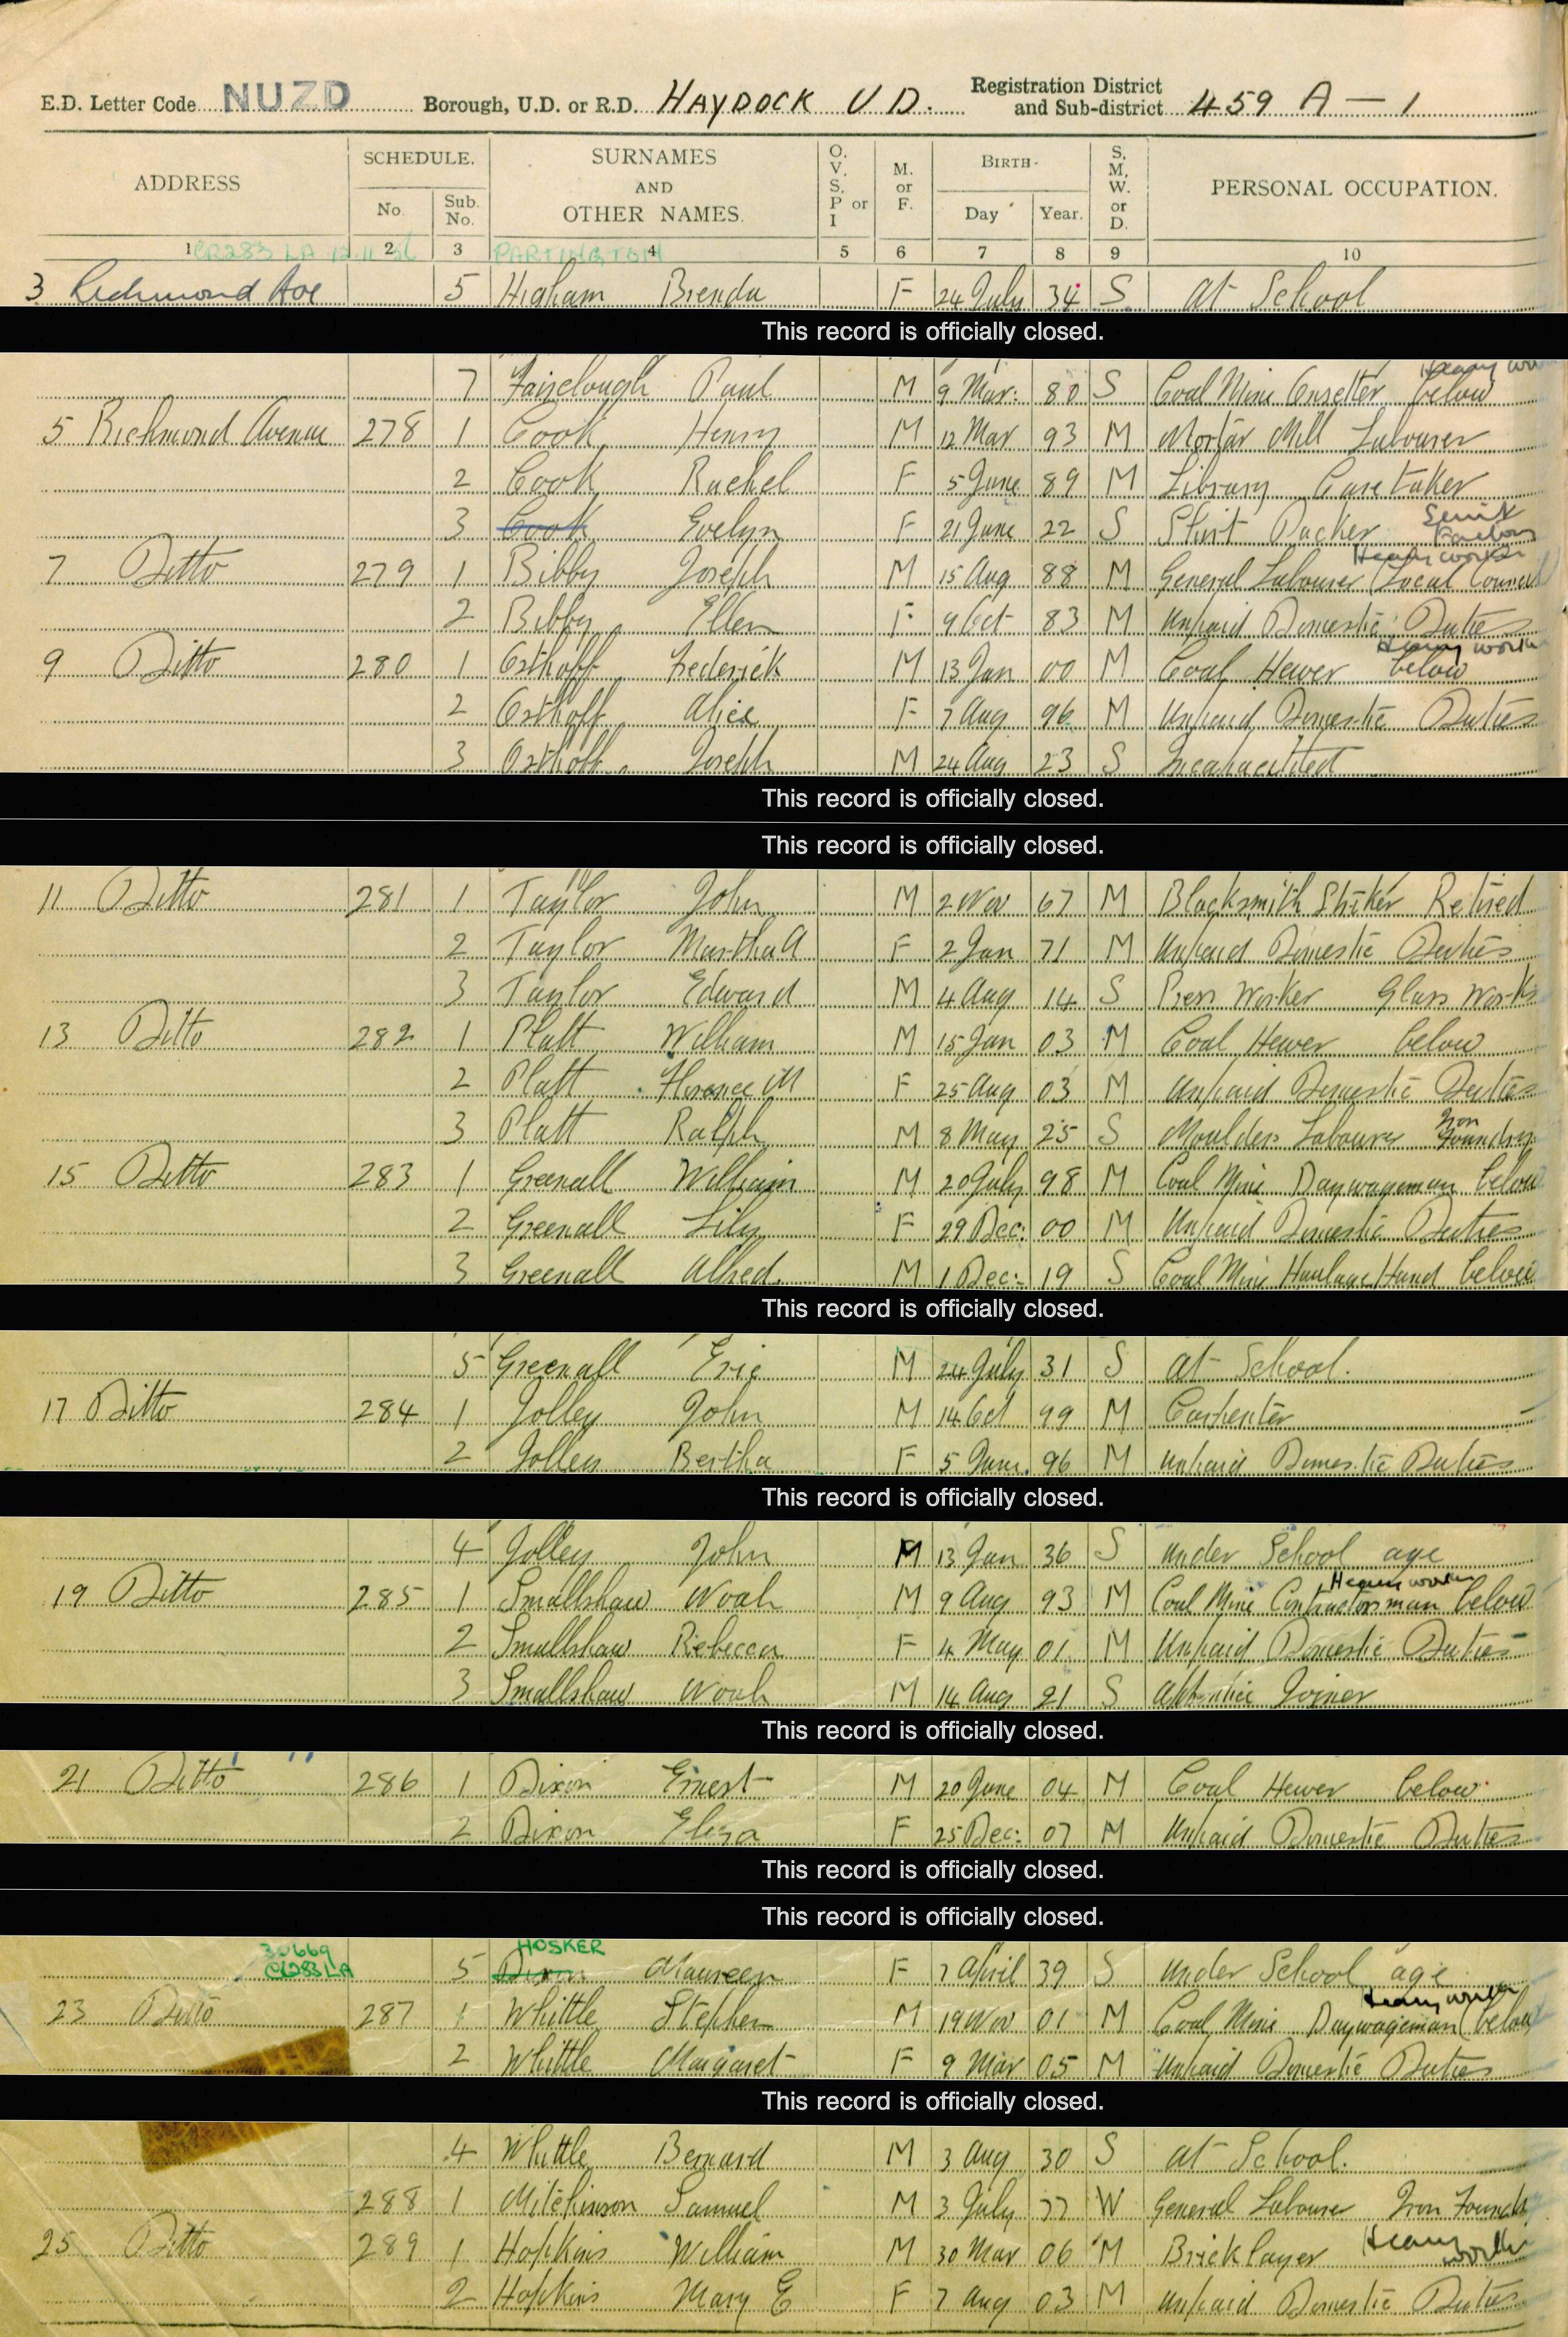 E.D. Letter Code NUZD Borough, U.D. or R.D. HAYDOCK U D. Registration District and Sub-district 459 A — 1
ADDRESS SCHEDULE. No. Sub. No. SURNAMES AND OTHER NAMES. O. V. S. P or I M. or F. BIRTH- Day Year. S. M. W. or D. PERSONAL OCCUPATION.
1 2 3 4 5 6 7 8 9 10
CR283 LA 12.11.56 PARTINGTON
3 Richmond Ave 5 Higham Brenda F 24 July 34 S At School
This record is officially closed.
Heavy
7 Fairclough Paul M 9 Mar: 80 S Coal Mine Onsetter below
5 Richmond Avenue 278 1 Cook Henry M 12 Mar 93 M Mortar Mill Labourer
2 Cook Rachel F 5 June 89 M Library Caretaker
3 Cook Evelyn F 21 June 22 S Shirt Packer
Heavy worker
7 Ditto 279 1 Bibby Joseph M 15 Aug 88 M General Labourer (Local Council)
2 Bibby Ellen F 9 Oct 83 M Unpaid Domestic Duties
Heavy work
9 Ditto 280 1 Osthoff Frederick M 13 Jan 00 M Coal Hewer below
2 Osthoff Alice F 7 Aug 96 M Unpaid Domestic Duties
3 Osthoff Joseph M 24 Aug 23 S Incapacited
This record is officially closed.
This record is officially closed.
11 Ditto 281 1 Taylor John M 2 Nov 67 M Blacksmith Striker Retired
2 Taylor Martha A F 2 Jan 71 M Unpaid Domestic Duties
3 Taylor Edward M 4 Aug 14 S Press Worker Glass Works
13 Ditto 282 1 Platt William M 15 Jan 03 M Coal Hewer below
2 Platt Florence M F 25 Aug 03 M Unpaid Domestic Duties
3 Platt Ralph M 8 May 25 S Moulders Labourer Iron Foundry
15 Ditto 283 1 Greenall William M 20 July 98 M Coal Mine Daywageman below
2 Greenall Lily F 29 Dec: 00 M Unpaid Domestic Duties
3 Greenall Alfred M 1 Dec: 19 S Coal Mine Haulage Hand below
This record is officially closed.
5 Greenall Eric M 24 July 31 S At School.
17 Ditto 284 1 Jolley John M 14 Oct 99 M Carpenter
2 Jolley Bertha F 5 June 96 M Unpaid Domestic Duties
This record is officially closed.
4 Jolley John M 13 Jan 36 S Under School age
Heavy work
19 Ditto 285 1 Smallshaw Noah M 9 Aug 93 M Coal Mine Contractorsman below
2 Smallshaw Rebecca F 4 May 01 M Unpaid Domestic Duties
3 Smallshaw Noah M 14 Aug 21 S Apprentice Joiner
This record is officially closed.
21 Ditto 286 1 Dixon Ernest M 20 June 04 M Coal Hewer below
2 Dixon Eliza F 25 Dec: 07 M Unpaid Domestic Duties
This record is officially closed.
This record is officially closed.
HOSKER
CR283 LA 5 Dixon Maureen F 7 April 39 S Under School age
Heavy work
23 Ditto 287 1 Whittle Stephen M 19 Nov 01 M Coal Mine Daywageman (below
2 Whittle Margaret F 9 Mar 05 M Unpaid Domestic Duties
This record is officially closed.
4 Whittle Bernard M 3 Aug 30 S At School.
288 1 Mitchinson Samuel M 3 July 77 W General Labourer Iron Foundry
25 Ditto 289 1 Hopkins William M 30 Mar 06 M Bricklayer Heavy work
2 Hopkins Mary E F 7 Aug 03 M Unpaid Domestic Duties